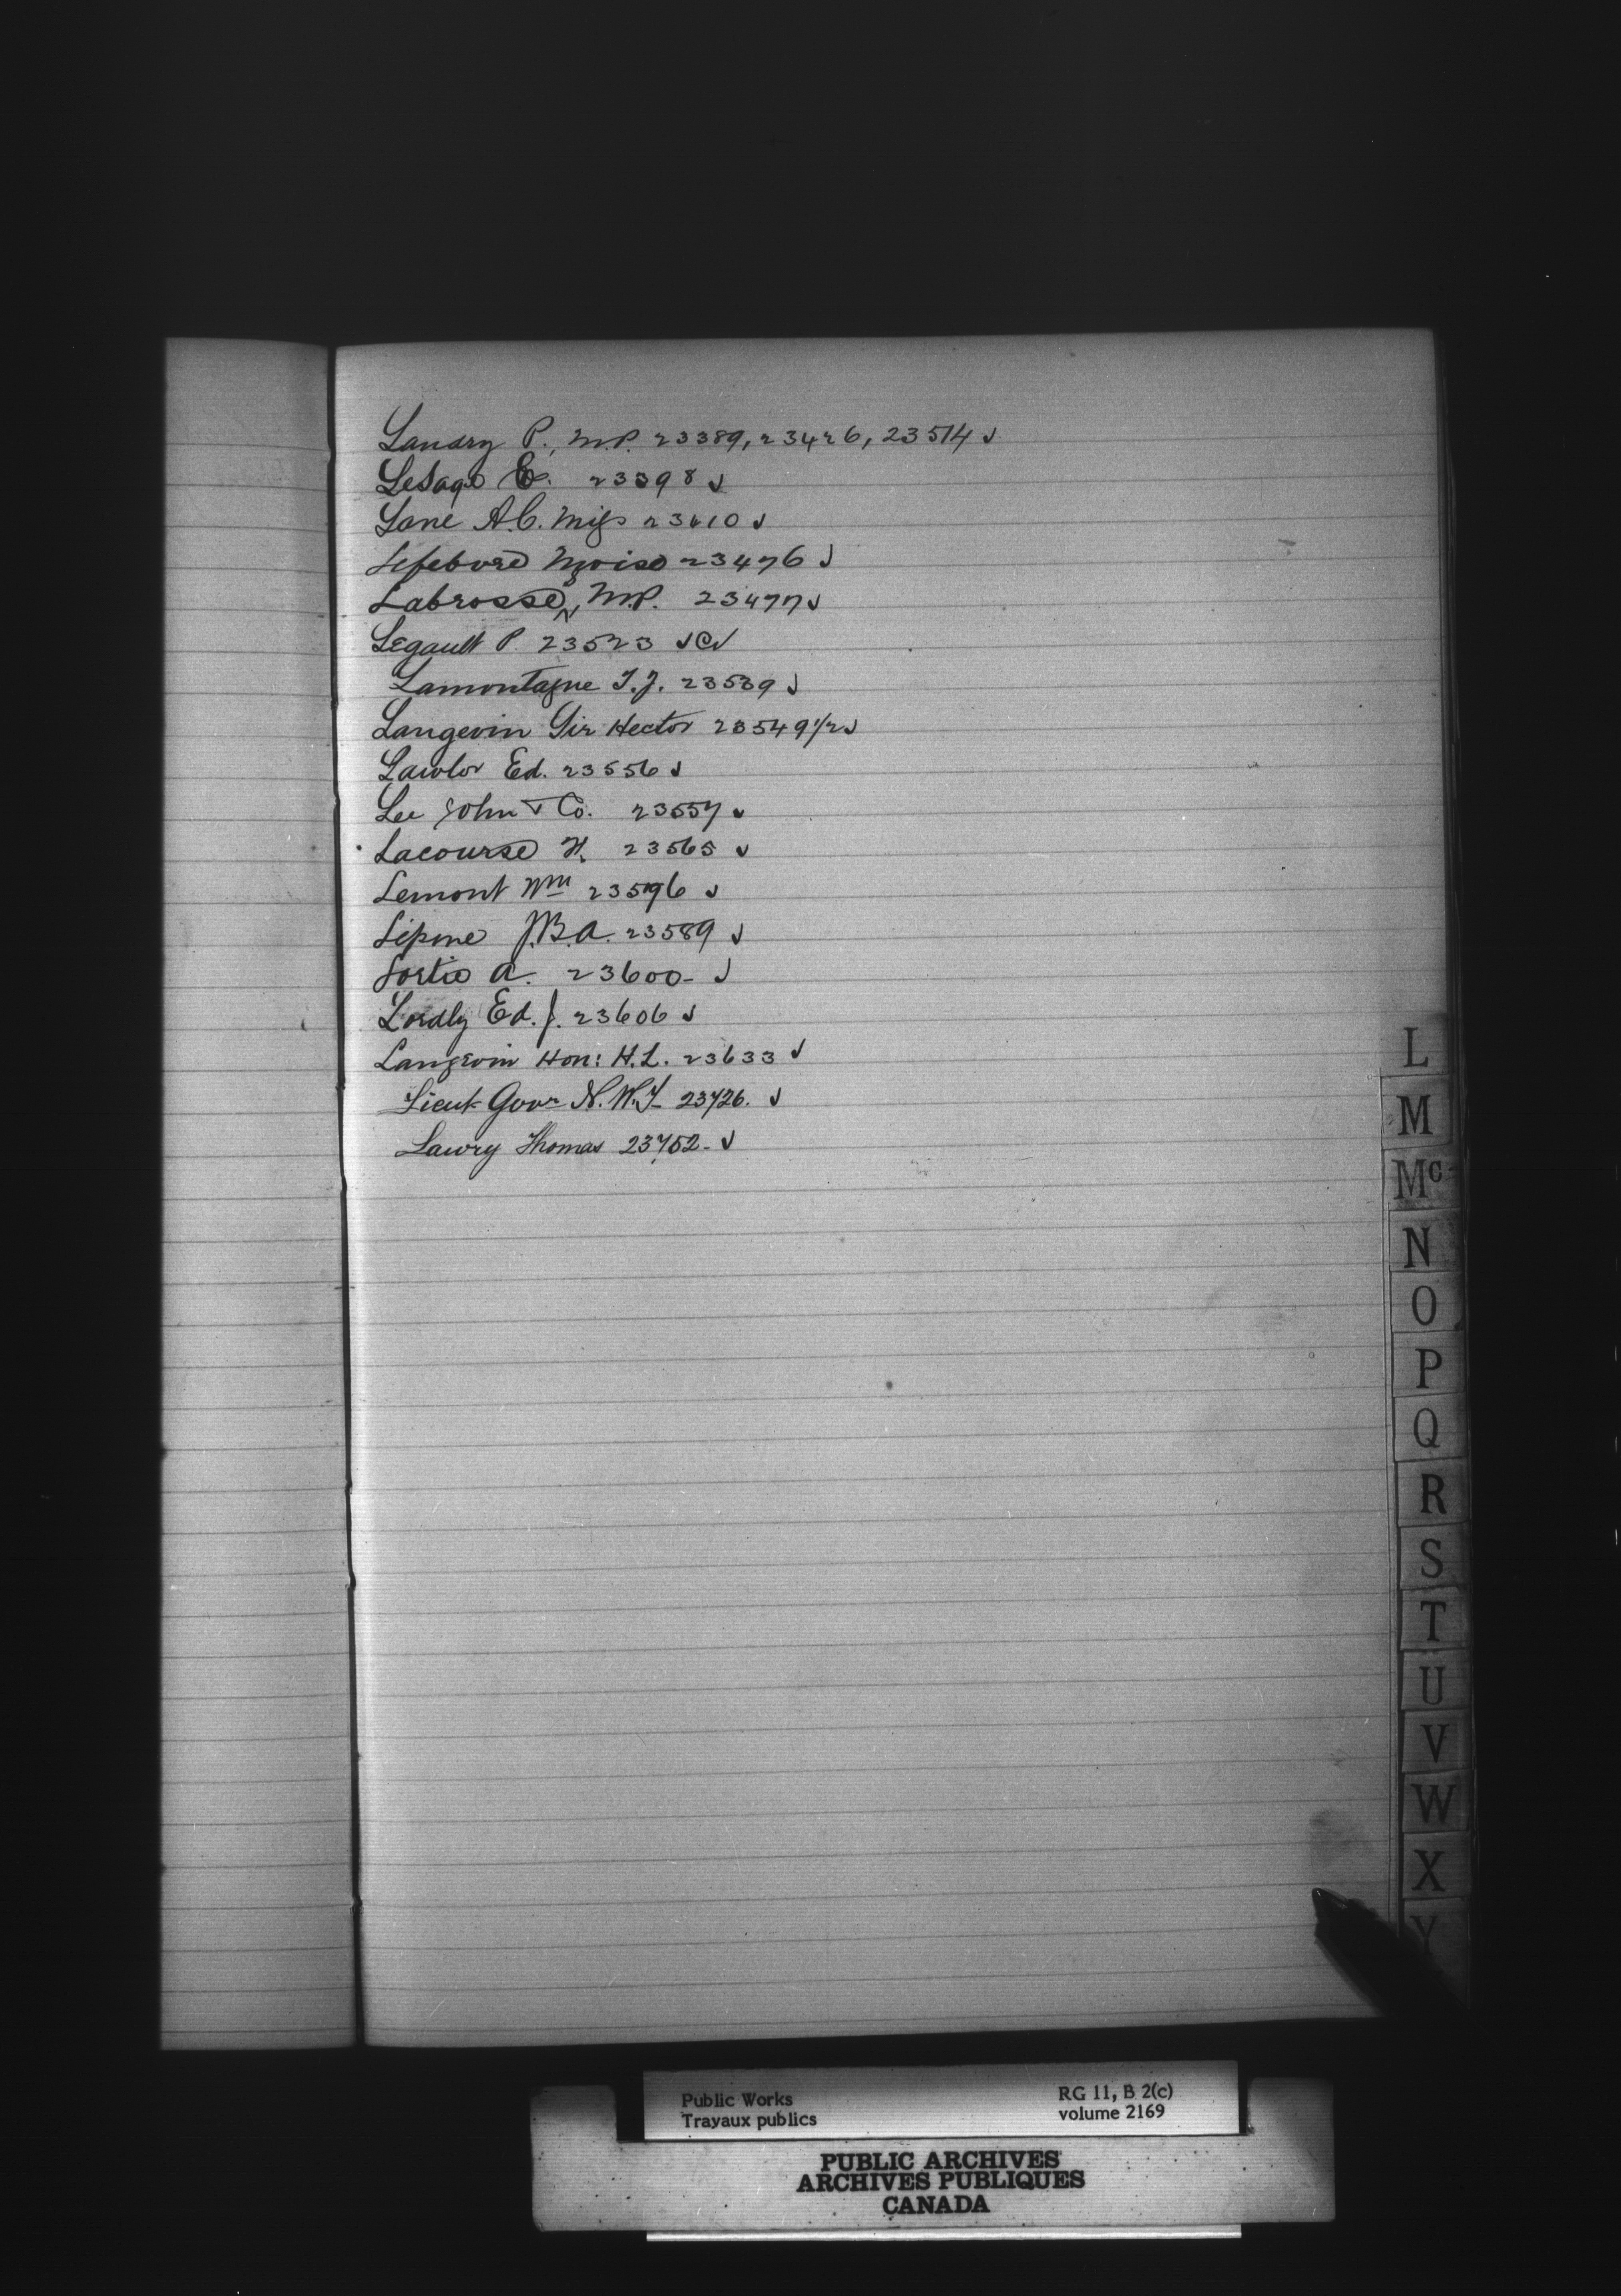 Landry P., M.P. 23389, 23426, 23514 ✓
LeSage E. 23398 ✓
Lane A.C. Mifs 23410 ✓
Lefebvre Moise 23476 ✓
Labrosse, M.P. 23477 ✓
Legault P. 23523 ✓ ✓
Lamontagne T.J. 23539 ✓
Langevin Sir Hector 23549 1/2 ✓
Lawlor Ed. 23556 ✓
Lee John & Co. 23557 ✓
Lacourse H. 23565 ✓
Lemont Wm 23596 ✓
Lépine J.B.A. 23589 ✓
Lortie A. 23600- ✓
Lordly Ed. J. 23606 ✓
Langevin Hon: H.L. 23633 ✓
Lieut Govr N.W.T. 23726. ✓
Lawry Thomas 23752- ✓
L
M
Mc
N
O
P
Q
R
S
T
U
V
W
X
Y
Public Works RG 11, B 2(c)
Travaux publics volume 2169
PUBLIC ARCHIVES
ARCHIVES PUBLIQUES
CANADA